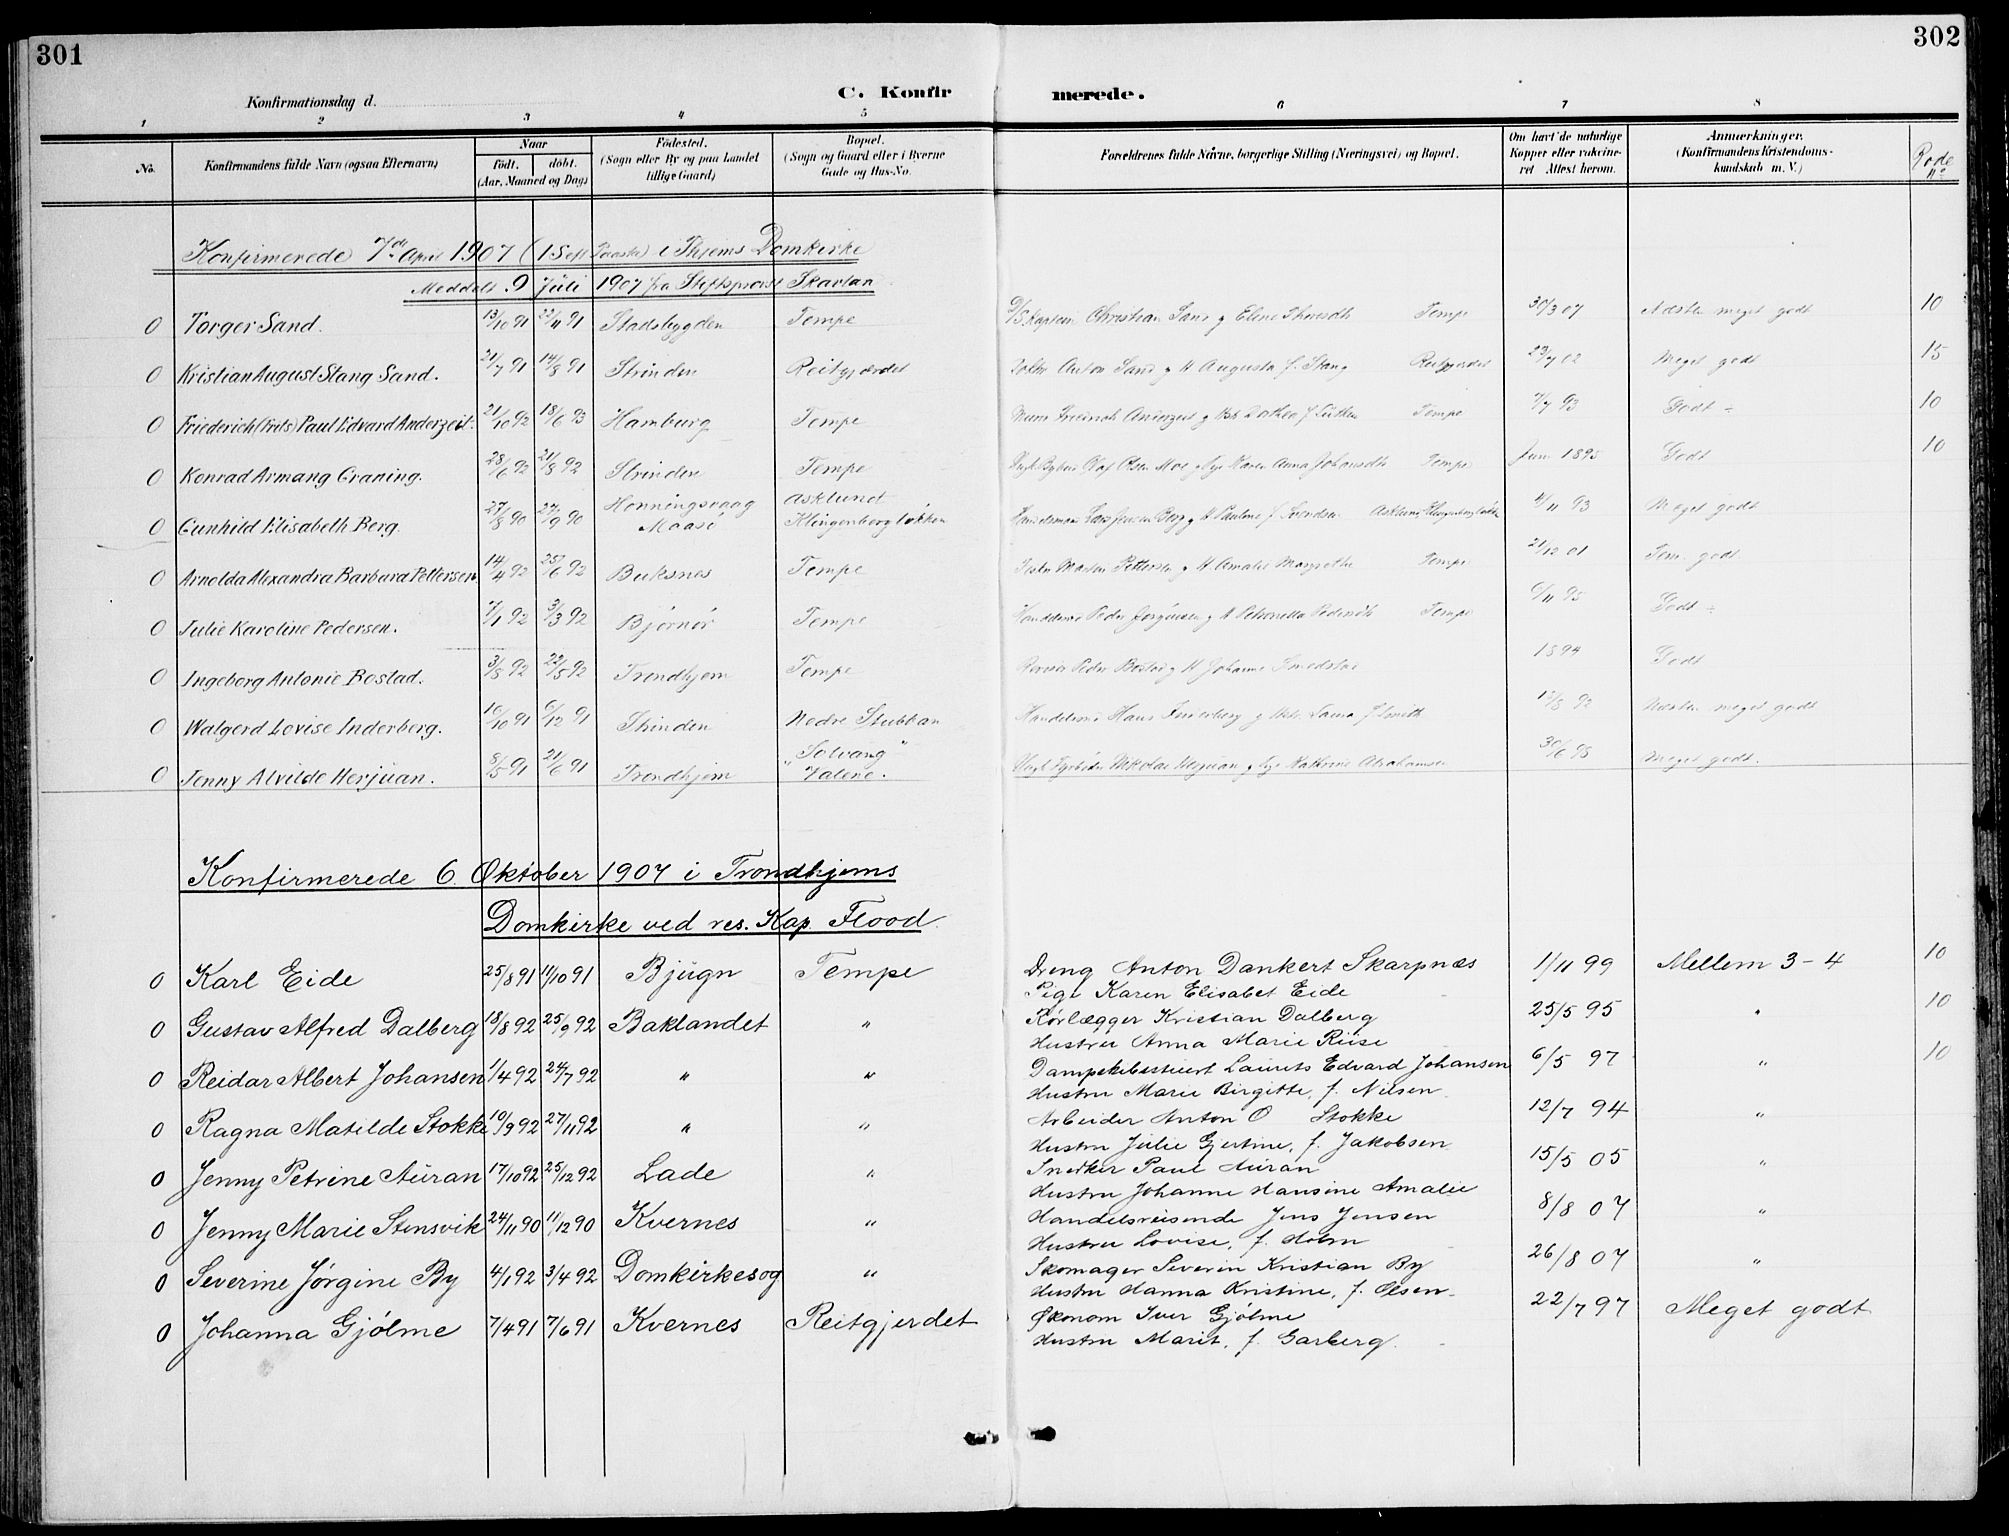 301
302
Konfirmationsdag d.
C. Konfirmerede.
1 2 3 4 5 6 7 8
No.
Konfirmandens fulde Navn (ogsaa Efternavn)
Naar
født. døbt.
(Aar, Maaned og Dag)
Fødested.
(Sogn eller By og paa Landet
tillige Gaard)
Bopæl.
(Sogn og Gaard eller i Byerne
Gade og Hus-No.
Forældrenes fulde Navne, borgerlige Stilling (Næringsvei) og Bopæl.
Om havt de naturlige
Kopper eller vakcine-
ret Attest herom.
Anmærkninger.
(Konfirmandens Kristendoms-
kundskab m. V.)
Rode
No
Konfirmerede 7de April 1907 (1 Søn. Paaske) i Thjems Domkirke
Meddelt 9 Juli 1907 fra Stiftsprovst Skavlan
0 Torger Sand. 13/10 91 22/11 91 Stadsbygden Tempe Christian Sand g Elene Tempe 30/3 07 Næsten meget godt 10
0 Kristian August Stang Sand. 21/7 91 14/8 91 Strinden Reitgjærdet Anton Sand g H Augusta f. Stang Reitgjerdet 29/7 02 Meget godt 15
0 Friederich (Frits) Paul Edvard Anderzeit. 21/10 92 18/6 93 Hamburg Tempe Tempe 7/7 93 Godt ÷ 10
0 Konrad Armang Graning. 28/6 92 21/8 92 Strinden Tempe Olsen Moe Karen Anna Johansdtr Tempe Juni 1895 Godt 10
0 Gunhild Elisabeth Berg. 27/8 90 27/9 90 Honningsvaag Maasö Asklund Klingenbergløkken Handelsmand Lars Jensen Berg g H Pauline f. Svendsen Asklund, Klingenbergløkk 4/11 93 Meget godt
0 Arnolda Alexandra Barbara Pettersen. 14/4 92 25/6 92 Buksnes Tempe Fisker Martin Pettersen g H Amalie Margrethe Tempe 21/12 01 Tem. godt
0 Julie Karoline Pedersen. 7/1 92 3/3 92 Bjørnør Tempe Peder Jørginsen g H Petronella Pedersdtr Tempe 6/11 95 Godt ÷
0 Ingeborg Antonie Bostad. 3/3 92 22/5 92 Trondhjem Tempe Peder Bostad g H Johanne Smedstad 1894 Godt
0 Walgerd Lovise Inderberg. 10/10 91 6/12 91 Strinden Nedre Stubban Handelsmd Hans Inderberg g Hstr. Laura f. Smith 12/8 92 Næsten meget godt
0 Jenny Alvilde Herjuan. 8/5 91 21/6 91 Trondhjem "Solvang" Valene. Nikolai Herjuan g Kathrine Abrahamsen 30/6 98 Meget godt.
Konfirmerede 6. Oktober 1907 i Trondhjems
Domkirke ved res. Kap. Flood.
0 Karl Eide 25/8 91 11/10 91 Bjugn Tempe Dreng Anton Dankert Skarpnæs 1/11 99 Mellem 3-4 10
Pige Karen Elisabet Eide
0 Gustav Alfred Dalberg 18/8 92 25/9 92 Baklandet " Rørlægger Kristian Dalberg 25/5 95 " 10
Hustru Anna Marie Riise
0 Reidar Albert Johansen 1/4 92 24/7 92 " " Dampskibsstuert Laurits Edvard Johansen 6/5 97 " 10
Hustru Marie Birgitte, f. Nilsen
0 Ragna Matilde Stokke 10/9 92 27/11 92 " " Arbeider Anton O Stokke 12/7 94 "
Hustru Julie Gjertine, f. Jakobsen
0 Jenny Petrine Auran 17/10 92 25/12 92 Lade " Snedker Paul Auran 15/5 05 "
Hustru Johanne Hansine Amalie
0 Jenny Marie Stensvik 24/11 90 11/12 90 Kvernes " Handelsreisende Jens Jensen 8/8 07 "
Hustru Lovise, f. Holm
0 Severine Jørgine By 4/1 92 3/4 92 Domkirkesog " Skomager Severin Kristian By 26/8 07 "
Hustru Hanna Kristine, f. Olsen
0 Johanna Gjølme 7/4 91 7/6 91 Kvernes Reitgjerdet Økonom Iver Gjølme 22/7 97 Meget godt
Hustru Marit, f. Garberg.